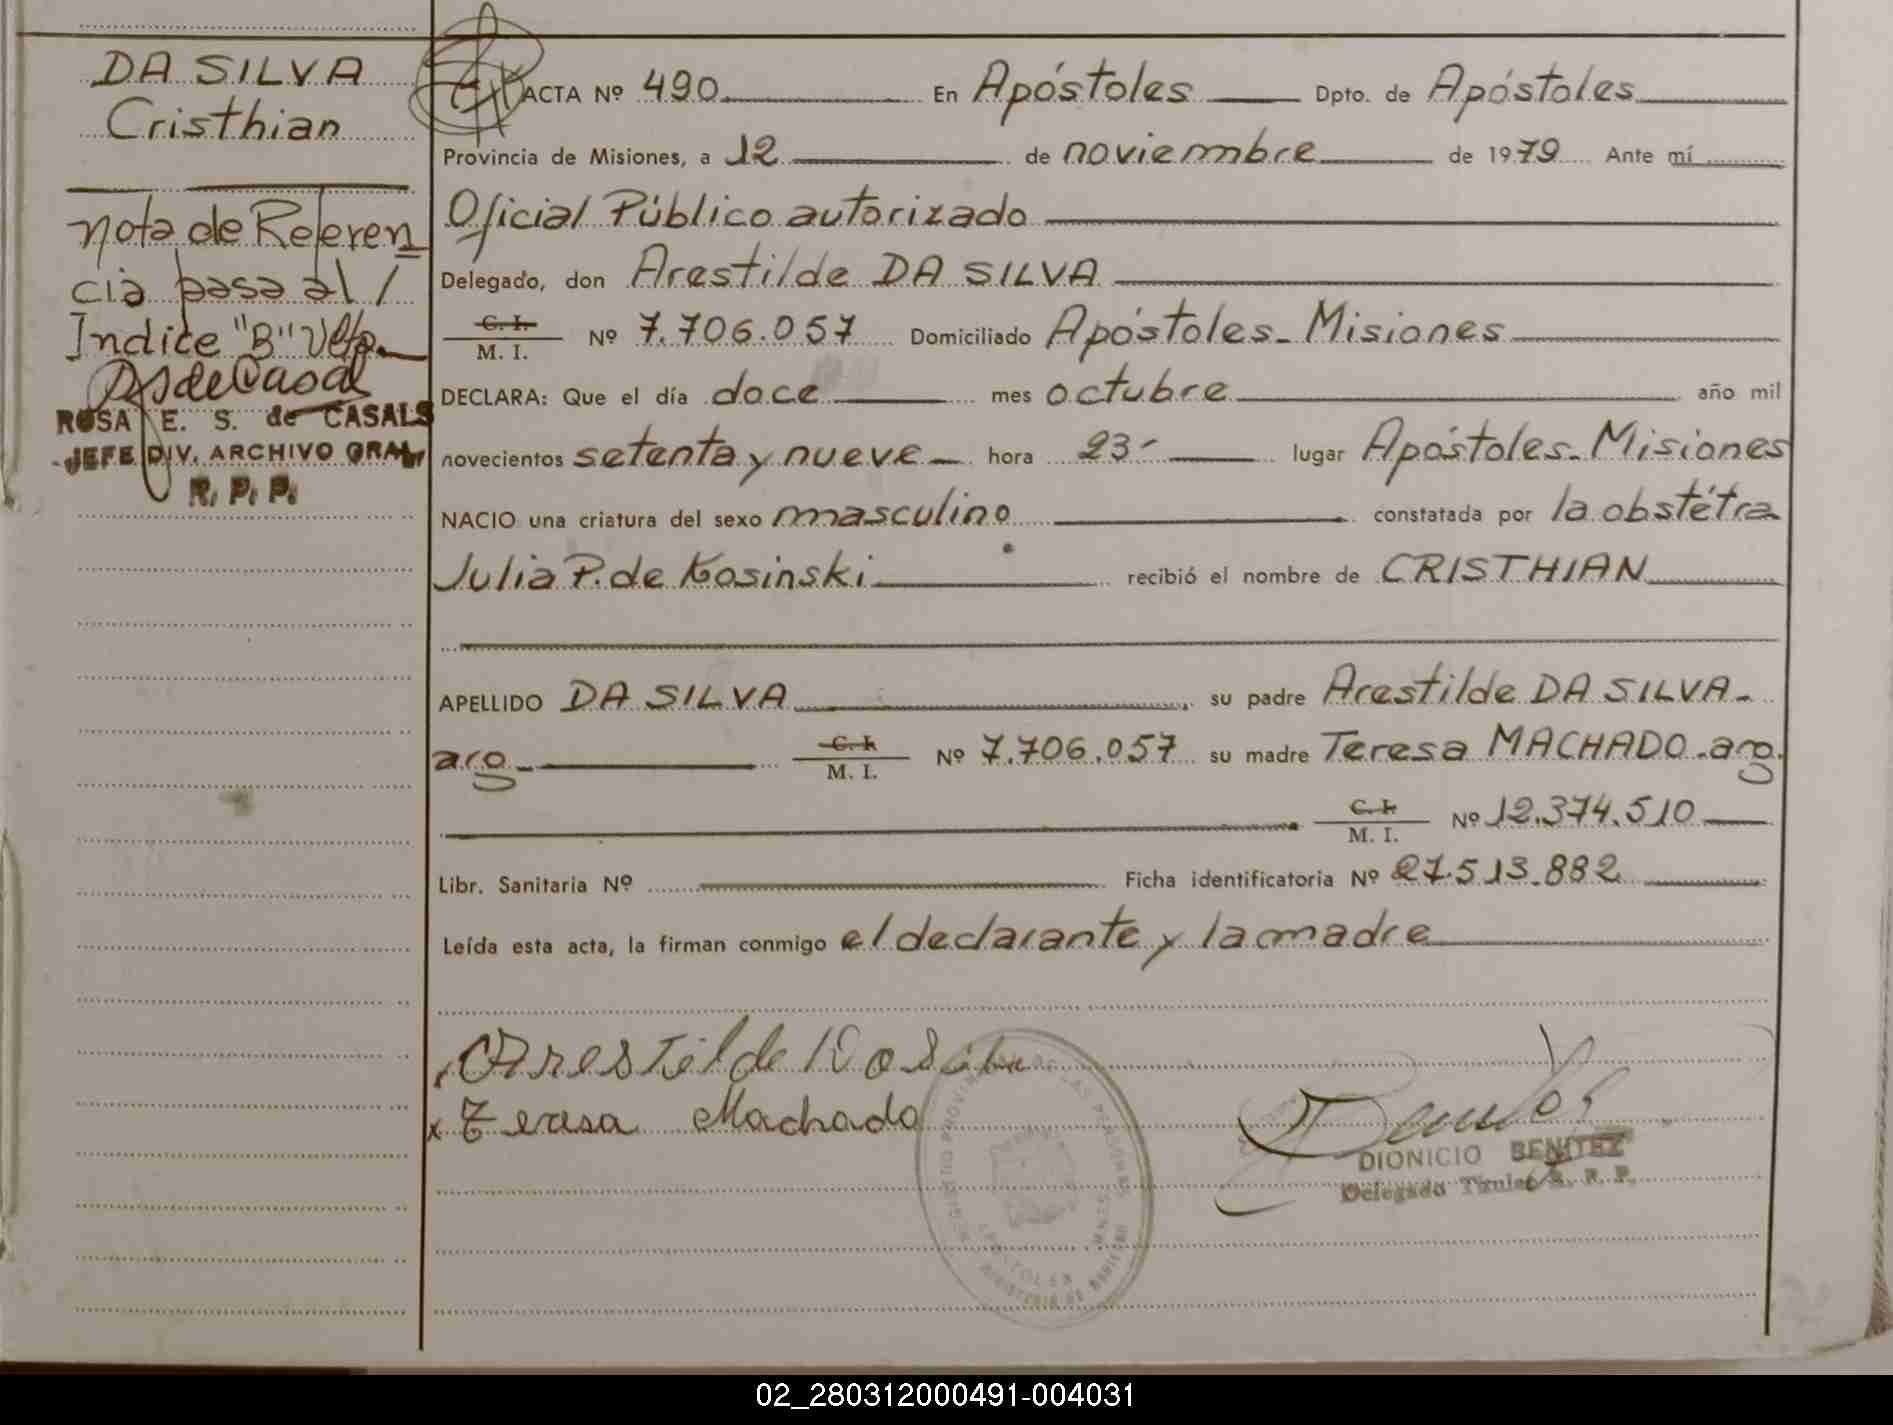 DA SILVA
Cristhian
nota de Referen
cia pasa al /
Indice "B" Vlta.
ROSA E. S. de CASALS
JEFE DIV. ARCHIVO GRAL.
R. P. P.
ACTA Nº 490 En Apóstoles Dpto. de Apóstoles
Provincia de Misiones, a 12 de noviembre de 1979 Ante mí
Oficial Público autorizado
Delegado, don Arestilde DA SILVA
C. I.
M. I. Nº 7.706.057 Domiciliado Apóstoles - Misiones
DECLARA: Que el día doce mes octubre año mil
novecientos setenta y nueve hora 23- lugar Apóstoles - Misiones
NACIO una criatura del sexo masculino constatada por la obstétra
Julia P. de Kosinski recibió el nombre de CRISTHIAN
APELLIDO DA SILVA su padre Arestilde DA SILVA -
arg - C. I.
M. I. Nº 7.706.057 su madre Teresa MACHADO - arg.
C. I.
M. I. Nº 12.374.510
Libr. Sanitaria Nº Ficha identificatoria Nº 27.513.882
Leída esta acta, la firman conmigo el declarante y la madre
Arestilde Da Silva
x Teresa Machado
DIONICIO BENITEZ
Delegado Titular R. P.
02_280312000491-004031